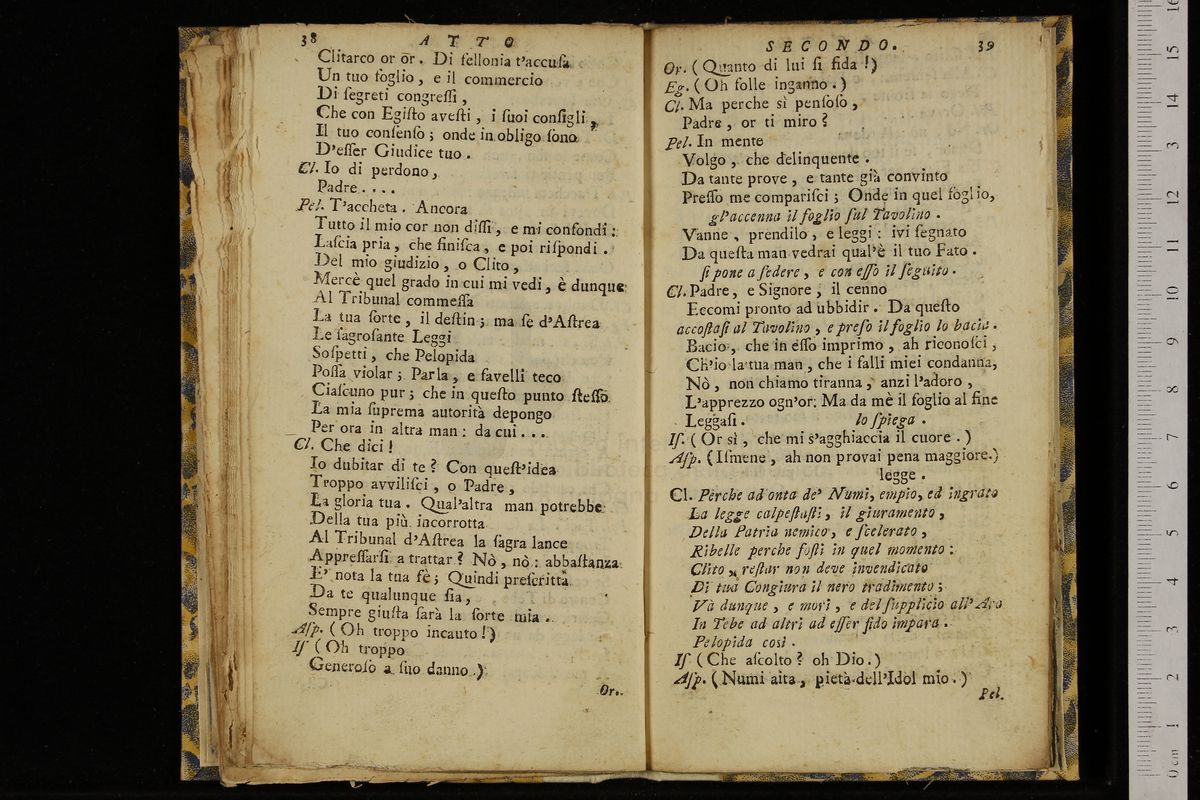 38 ATTO
Clitarco or or. Di fellonia t'accuſa
Un tuo foglio, e il commercio
Di ſegreti congreſſi,
Che con Egiſto aveſti, i ſuoi conſigli,
Il tuo conſenſo; onde in obligo ſono
D'eſſer Giudice tuo.
Cl. Io di perdono,
Padre....
Pel. T'accheta. Ancora
Tutto il mio cor non diſſi, e mi confondi:
Laſcia pria, che finiſca, e poi riſpondi.
Del mio giudizio, o Clito,
Mercè quel grado in cui mi vedi, è dunque
Al Tribunal commeſſa
La tua ſorte, il deſtin; ma ſe d'Aſtrea
Le ſagroſante Leggi
Soſpetti, che Pelopida
Poſſa violar; Parla, e favelli teco
Ciaſcuno pur; che in queſto punto ſteſſo
La mia ſuprema autorità depongo
Per ora in altra man: da cui...
Cl. Che dici!
Io dubitar di te? Con queſt'idea
Troppo avviliſci, o Padre,
La gloria tua. Qual'altra man potrebbe
Della tua più incorrotta
Al Tribunal d'Aſtrea la ſagra lance
Appreſſarſi a trattar? Nò, nò: abbaſtanza
E' nota la tua fè; Quindi preſcritta
Da te qualunque ſia,
Sempre giuſta ſarà la ſorte mia.
Aſp. (Oh troppo incauto!)
Iſ (Oh troppo
Generoſo a ſuo danno.)
Or.
SECONDO. 39
Or. (Quanto di lui ſi fida!)
Eg. (Oh folle inganno.)
Cl. Ma perche sì penſoſo,
Padre, or ti miro?
Pel. In mente
Volgo, che delinquente.
Da tante prove, e tante già convinto
Preſſo me compariſci; Onde in quel foglio,
gl'accenna il foglio ſul Tavolino.
Vanne, prendilo, e leggi: ivi ſegnato
Da queſta man vedrai qual'è il tuo Fato.
ſi pone a ſedere, e con eſſo il ſeguito.
Cl. Padre, e Signore, il cenno
Eccomi pronto ad ubbidir. Da queſto
accoſtaſi al Tavolino, e preſo il foglio lo bacia.
Bacio, che in eſſo imprimo, ah riconoſci,
Ch'io la tua man, che i falli miei condanna,
Nò, non chiamo tiranna, anzi l'adoro,
L'apprezzo ogn'or: Ma da mè il foglio al fine
Leggaſi. lo ſpiega.
Iſ. (Or sì, che mi s'agghiaccia il cuore.)
Aſp. (Iſmene, ah non provai pena maggiore.)
legge.
Cl. Perche ad onta de' Numi, empio, ed ingrato
La legge calpeſtaſti, il giuramento,
Della Patria nemico, e ſcelerato,
Ribelle perche foſti in quel momento:
Clito, reſtar non deve invendicato
Di tua Congiura il nero tradimento;
Và dunque, e mori, e del ſupplicio all'Ara
In Tebe ad altri ad eſſer fido impara.
Pelopida così.
Iſ (Che aſcolto? oh Dio.)
Aſp. (Numi aita, pietà dell'Idol mio.)
Pel.